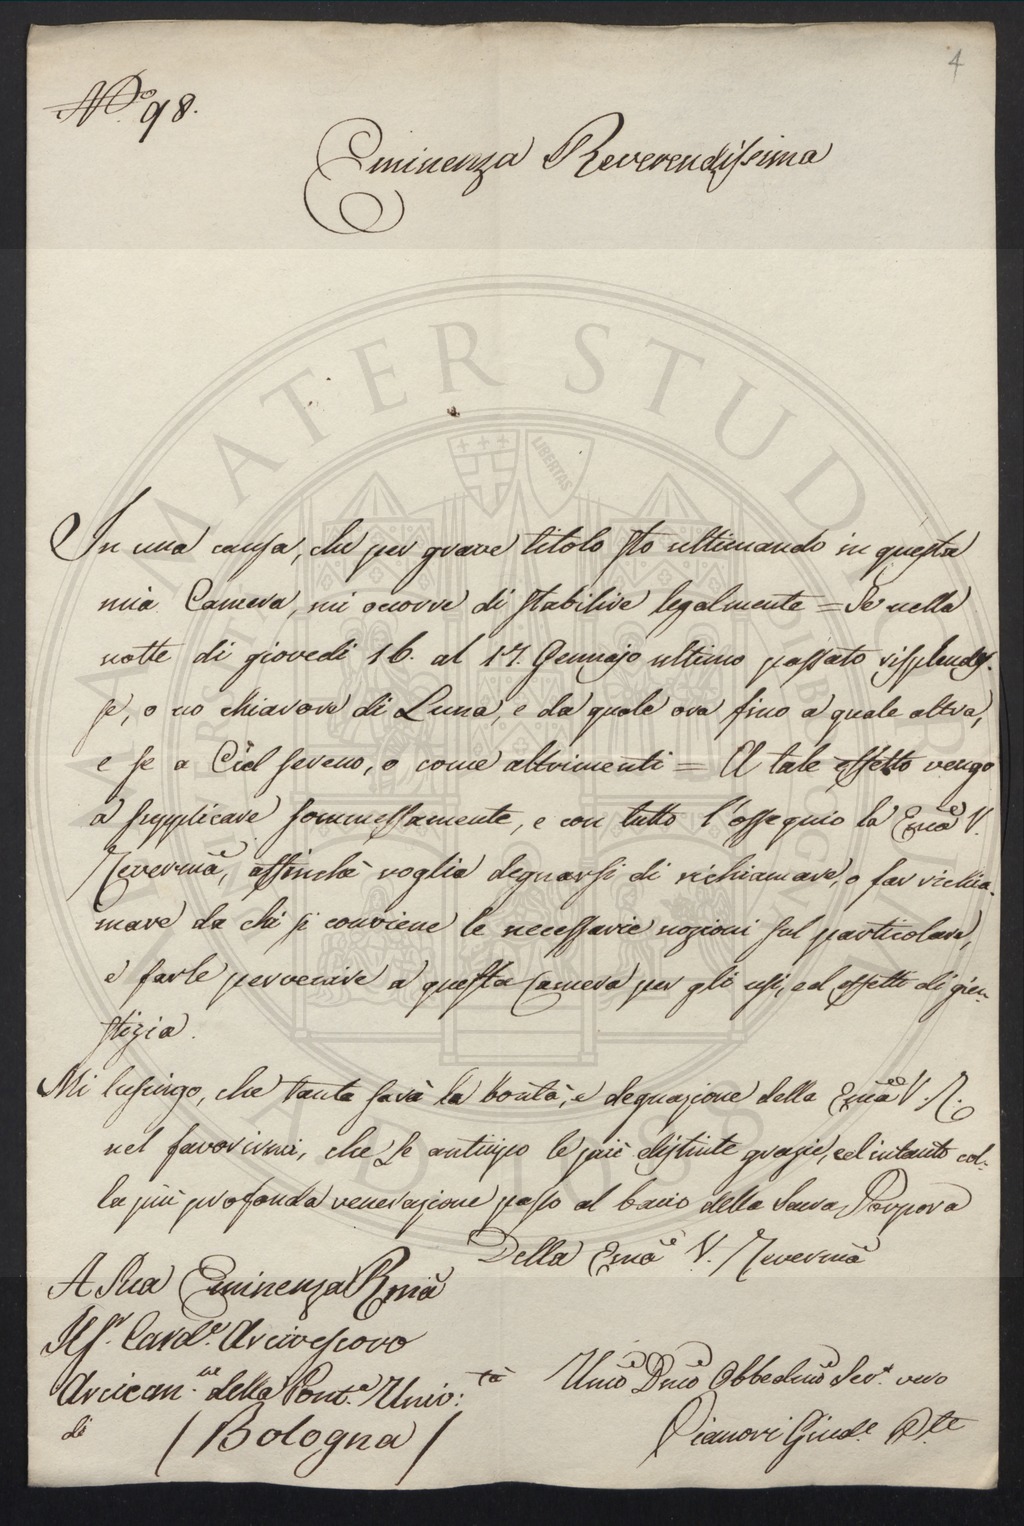 4
N.º 98.
Eminenza Reverendissima
In una causa, che per grave titolo sto ultimando in questa
mia Camera, mi occorre di stabilire legalmente = Se nella
notte di giovedì 16. al 17. Gennajo ultimo passato risplendes-
se, o no chiarore di Luna, e da quale ora fino a quale altra,
e se a Ciel sereno, o come altrimenti = A tale effetto vengo
a supplicare sommessamente, e con tutto l'ossequio la Emã V.
Revermã, affinchè voglia degnarsi di richiamare, o far richia-
mare da chi si conviene le necessarie nozioni sul particolare,
e farle pervenire a questa Camera per gli usi, ed effetti di giu-
stizia.
Mi lusingo, che tanta sarà la bontà, e degnazione della Emã V. R.
nel favorirmi, che Le anticipo le più distinte grazie, ed intanto col-
la più profonda venerazione passo al bacio della Sacra Porpora
Della Emã V. Revermã
A Sua Eminenza Rmã
Il Sr. Card.e Arcivescovo
Arcican.re della Pont.a Univ:tà
di (Bologna)
Umõ Dmõ Obbedmõ Ser.e vero
Pianori Giud.e
ALMA MATER STUDIORUM
LIBERTAS
A.D. 1088